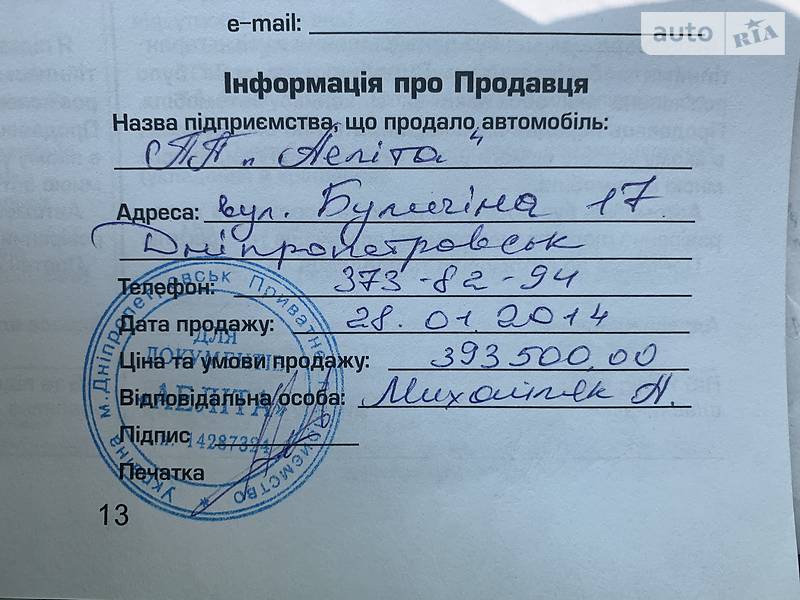 auto RIA
e-mail:
Інформація про Продавця
Назва підприємства, що продало автомобіль:
ПП "Аеліта"
Адреса: вул. Буличіна 17
Дніпропетровськ
Телефон: 373-82-94
Дата продажу: 28.01.2014
Ціна та умови продажу: 393500,00
Відповідальна особа: А.
Підпис
Печатка
Україна м.Дніпропетровськ Приватне підприємство
ДЛЯ
ДОКУМЕНТІВ
«АЕЛІТА»
14287324
13